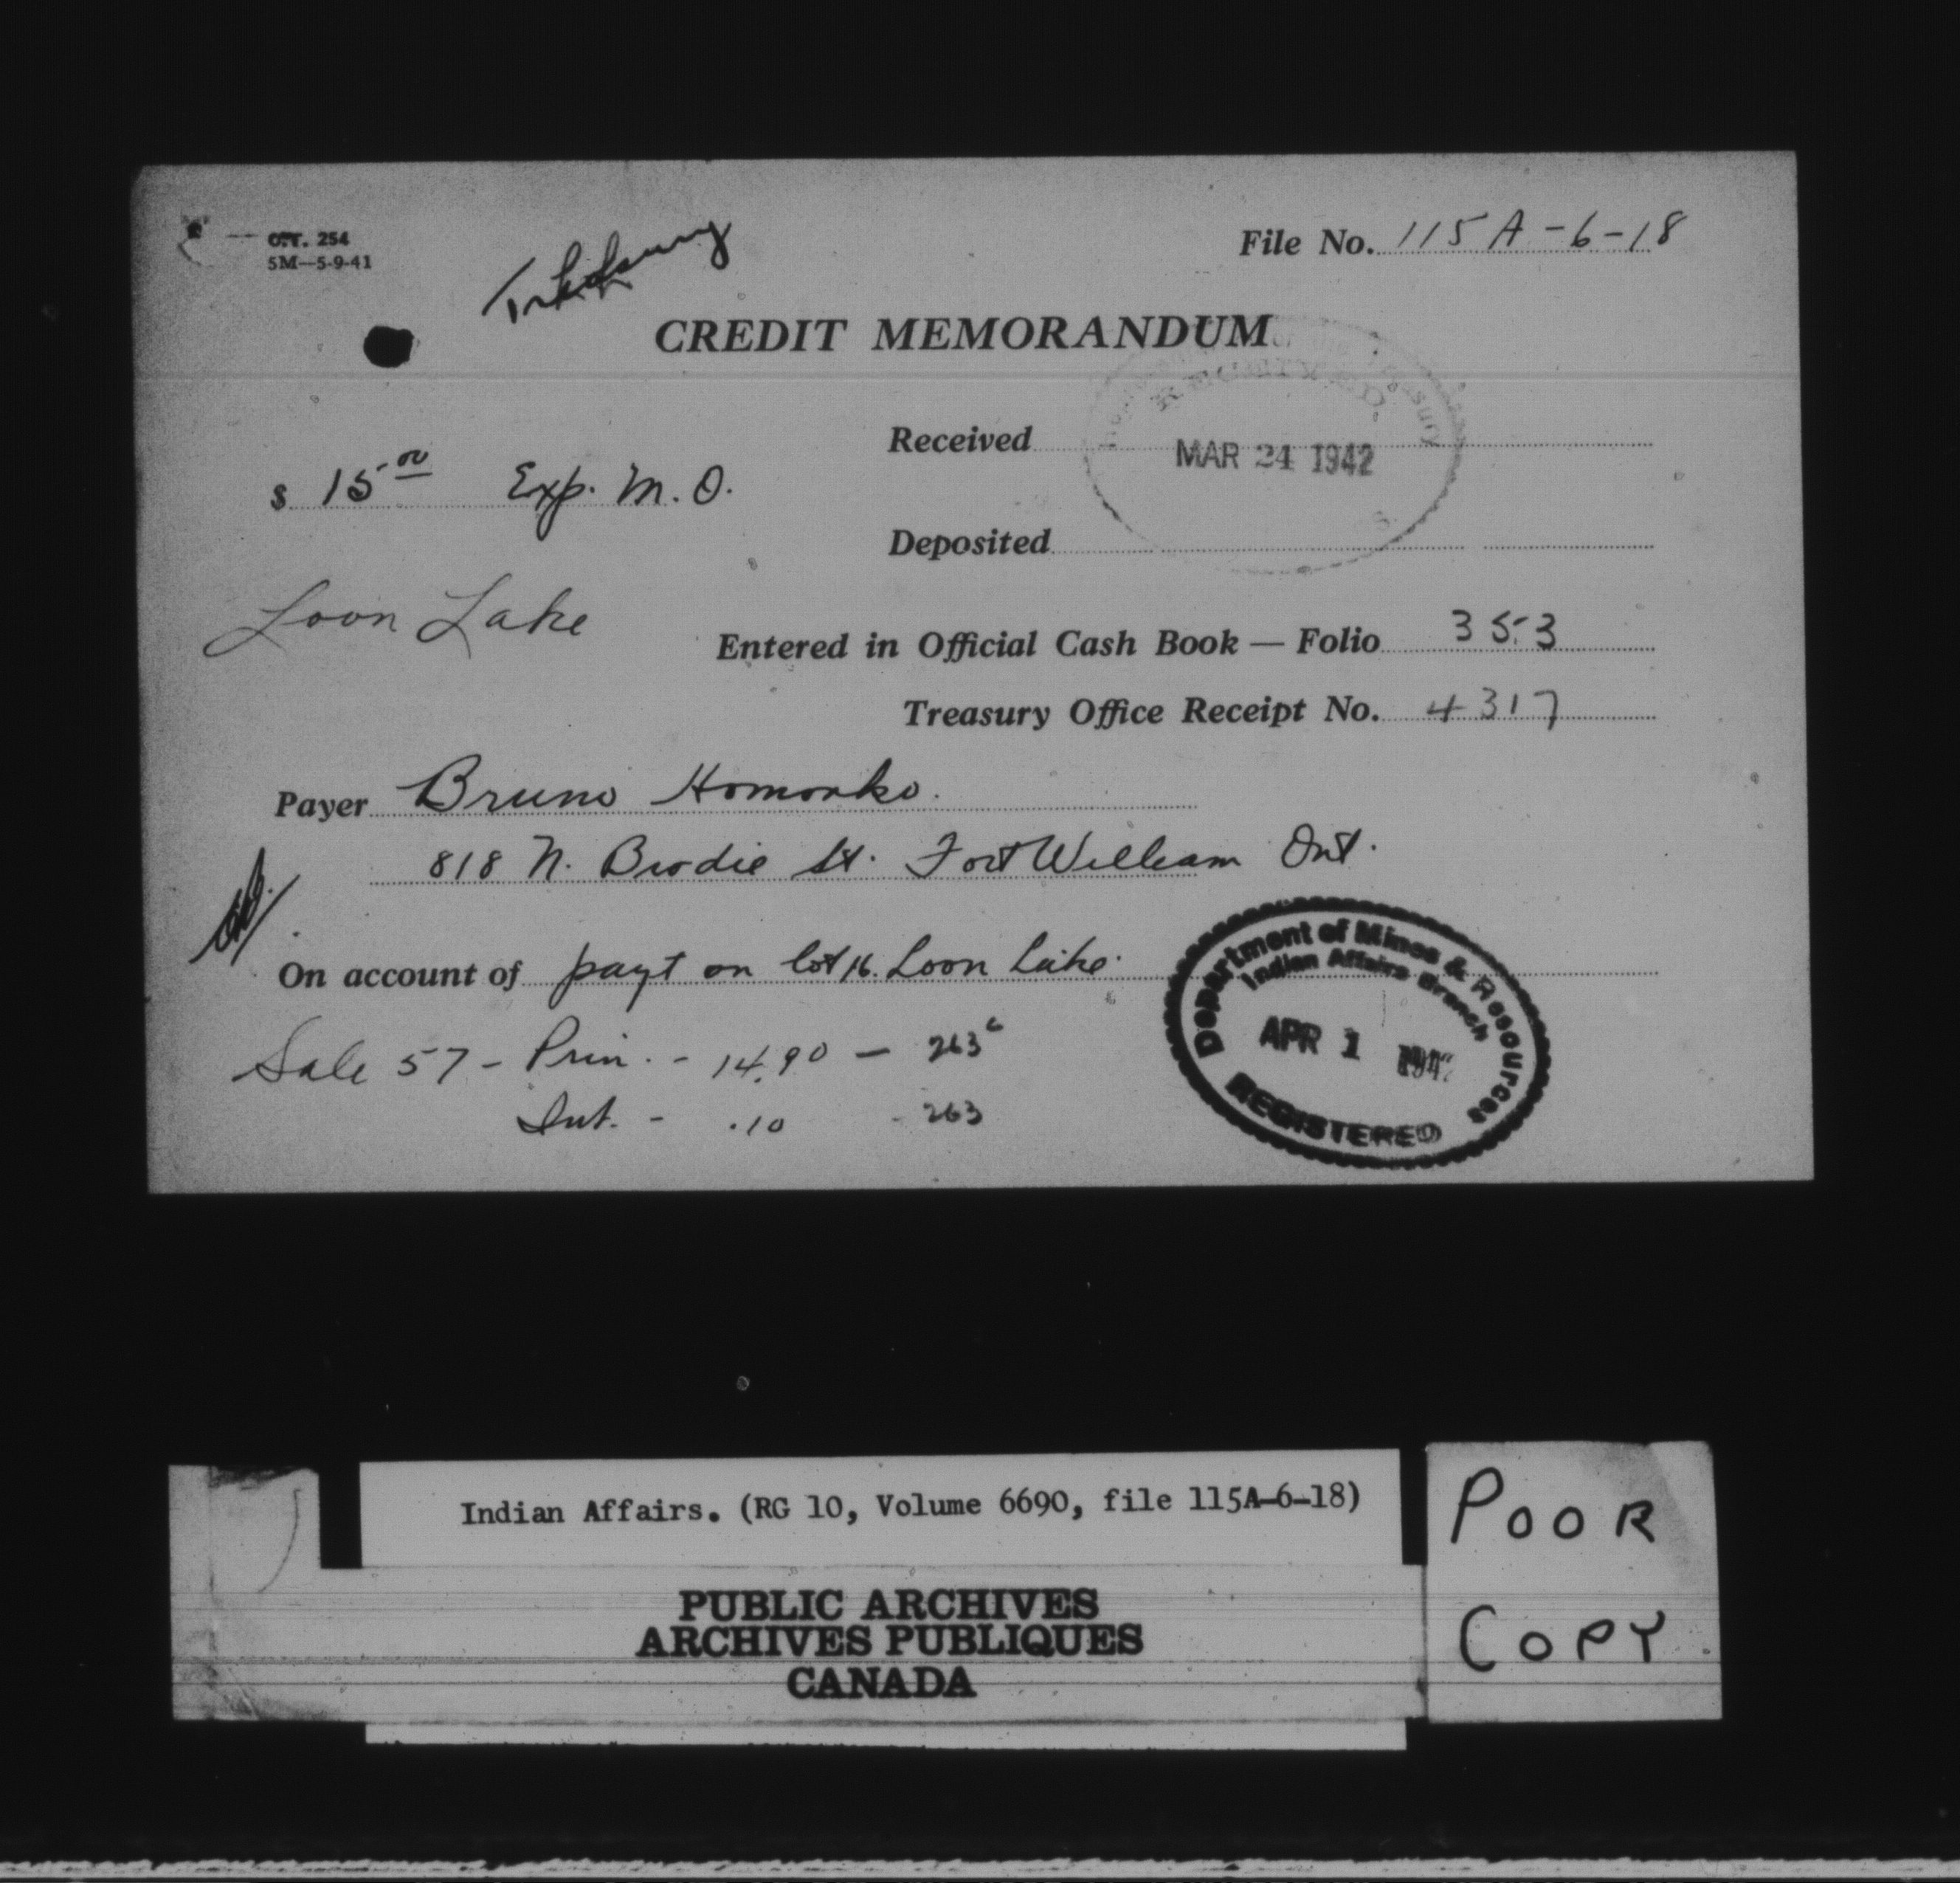 O.T. 254
5M—5-9-41
File No. 115A-6-18
CREDIT MEMORANDUM
RECEIVED
Received MAR 24 1942
$ 15 00 Exp. M.O.
Deposited
Loon Lake
Entered in Official Cash Book — Folio 353
Treasury Office Receipt No. 4317
Payer Bruno Homonko.
818 N. Brodie St. Fort William Ont.
On account of payt on lot 16. Loon Lake.
Department of Mines & Resources
Indian Affairs Branch
APR 1 1942
REGISTERED
Sale 57 - Prin. - 14.90 — 263
Int. - .10 - 263
Indian Affairs. (RG 10, Volume 6690, file 115A-6-18)
PUBLIC ARCHIVES
ARCHIVES PUBLIQUES
CANADA
POOR
COPY